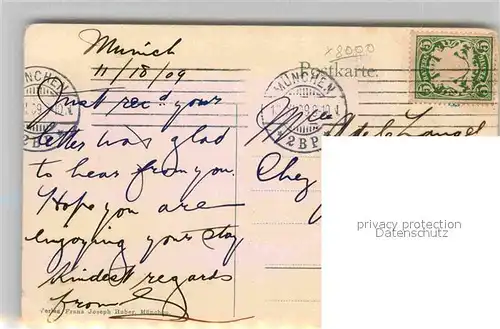 Munich
11/18/09
Just rec'd your
letter was glad
to hear from you.
Hope you are
enjoying your stay
Kindest regards
from
x8000
Postkarte.
MÜNCHEN
2 B.P.
MÜNCHEN
2 B.P.
5 5
Mlle
Chez
privacy protection
Datenschutz
Verlag Franz Joseph Huber, München